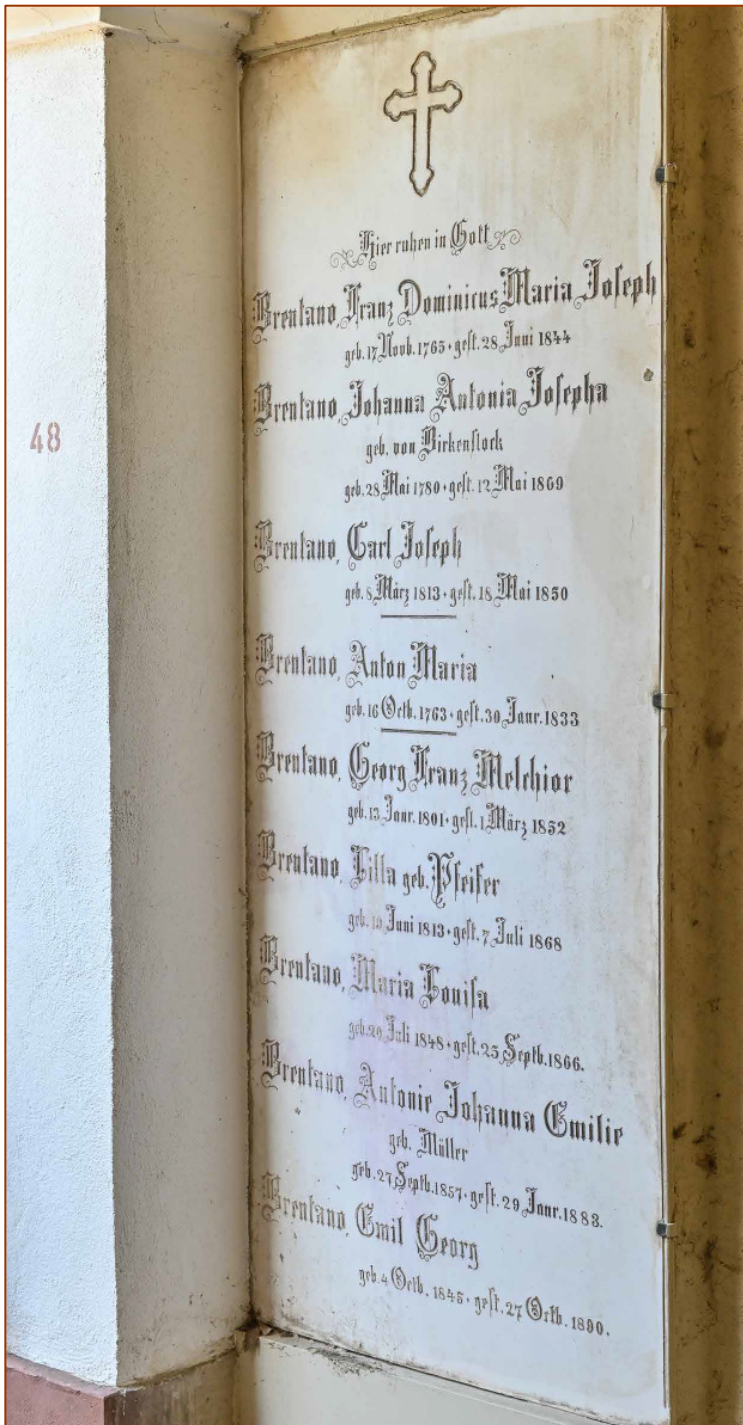 48
Hier ruhen in Gott
Brentano, Franz Dominicus Maria Joseph
geb. 17 Novb. 1765 · gest. 28 Juni 1844
Brentano, Johanna Antonia Josepha
geb. von Birkenstock
geb. 28 Mai 1780 · gest. 12 Mai 1869
Brentano, Carl Joseph
geb. 8 März 1813 · gest. 18 Mai 1850
Brentano, Anton Maria
geb. 16 Octb. 1763 · gest. 30 Janr. 1833
Brentano, Georg Franz Melchior
geb. 13 Janr. 1801 · gest. 1 März 1852
Brentano, Lilla geb. Pfeifer
geb. Juni 1813 · gest. 7 Juli 1868
Brentano, Maria Louisa
geb. 20 Juli 1848 · gest. 25 Septb. 1866.
Brentano, Antonie Johanna Emilie
geb. Müller
geb. 27 Septb. 1857 · gest. 29 Janr. 1883.
Brentano, Emil Georg
geb. 4 Octb. 1845 · gest. 27 Octb. 1890.